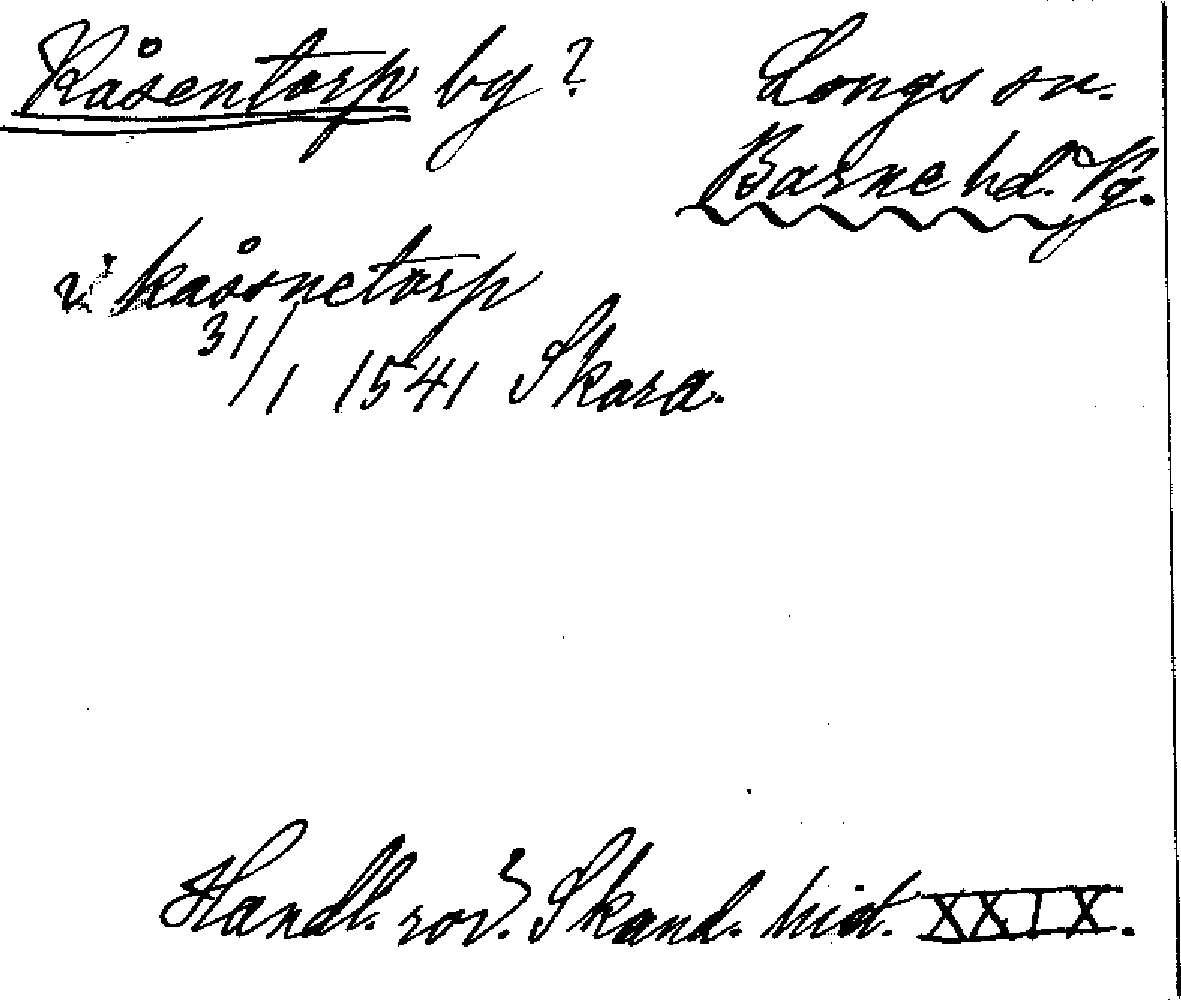 Kåsentorp by?
Longs sn.
Barne hd. Vg.
i kaåsnetorp
31/1 1541 Skara.
Handl. rör. Skand. hist. XXIX.